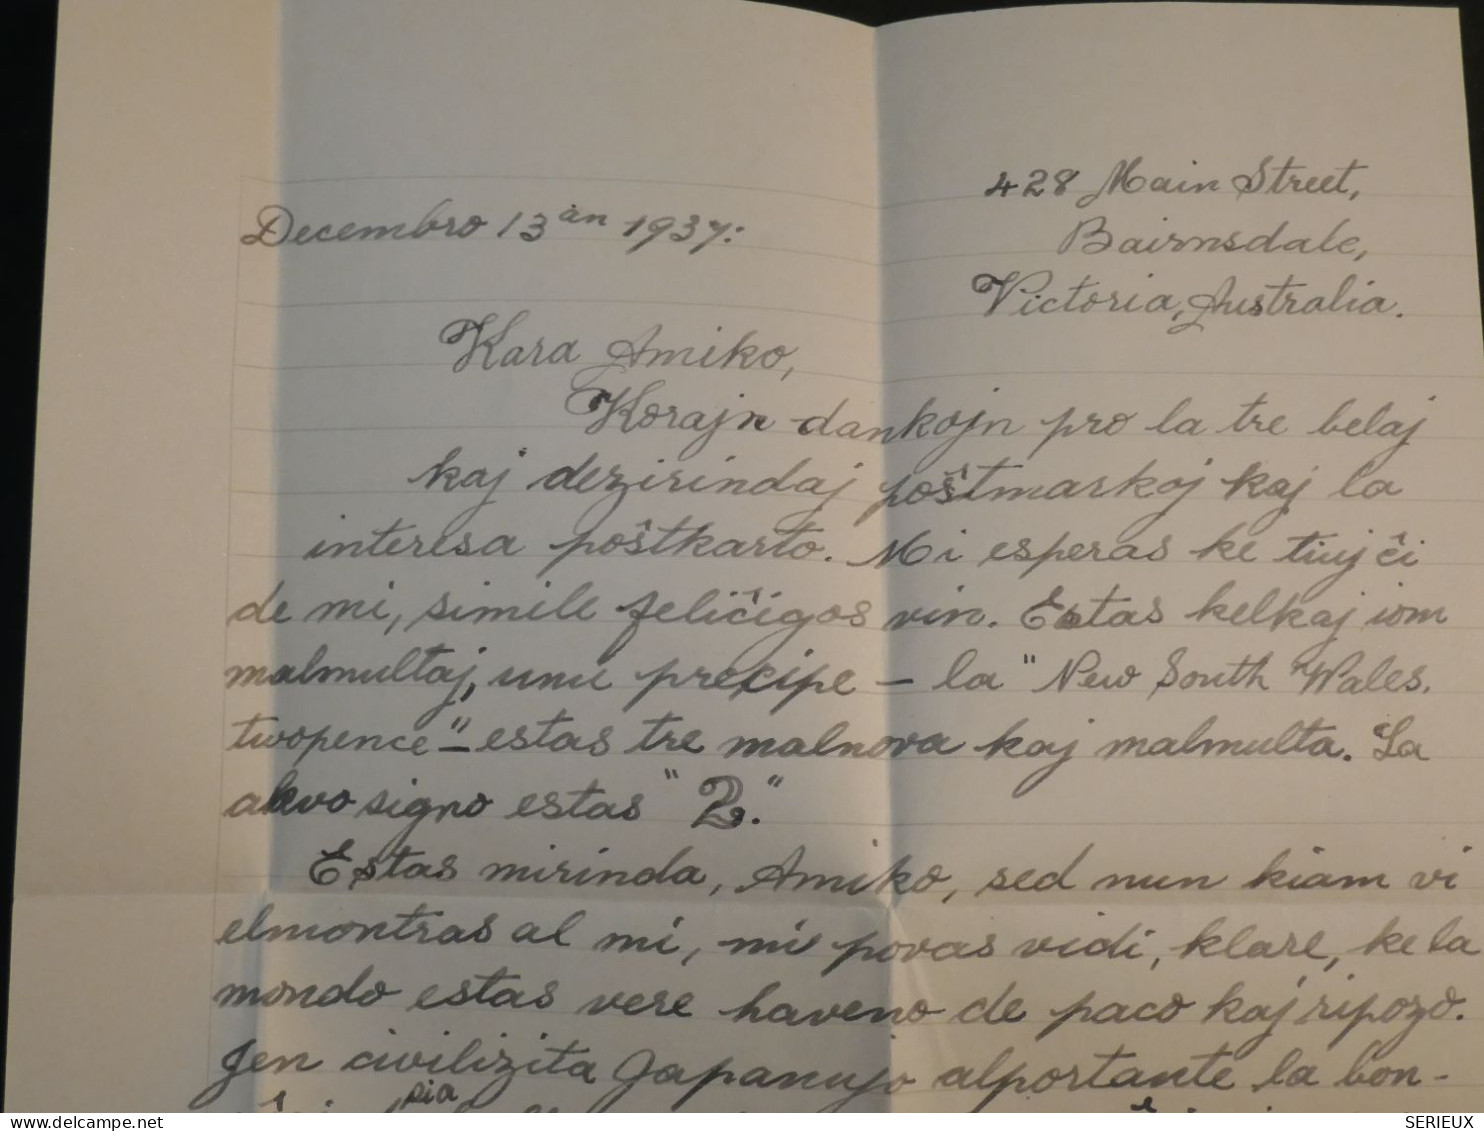 428 Main Street,
Bairnsdale,
Victoria, Australia.
Decembro 13an 1937:
Kara Amiko,
Korajn dankojn pro la tre belaj
kaj dezirindaj poŝtmarkoj kaj la
interesa poŝtkarto. Mi esperas ke tiuj ĉi
de mi, simile feliĉigos vin. Estas kelkaj iom
malmultaj, unu precipe – la "New South Wales.
twopence" – estas tre malnova kaj malmulta. La
akvo signo estas "2."
Estas mirinda, Amiko, sed nun kiam vi
elmontras al mi, mi povas vidi, klare, ke la
mondo estas vere haveno de paco kaj ripozo.
Jen civilizita Japanujo alportante la bon-
sia
SERIEUX